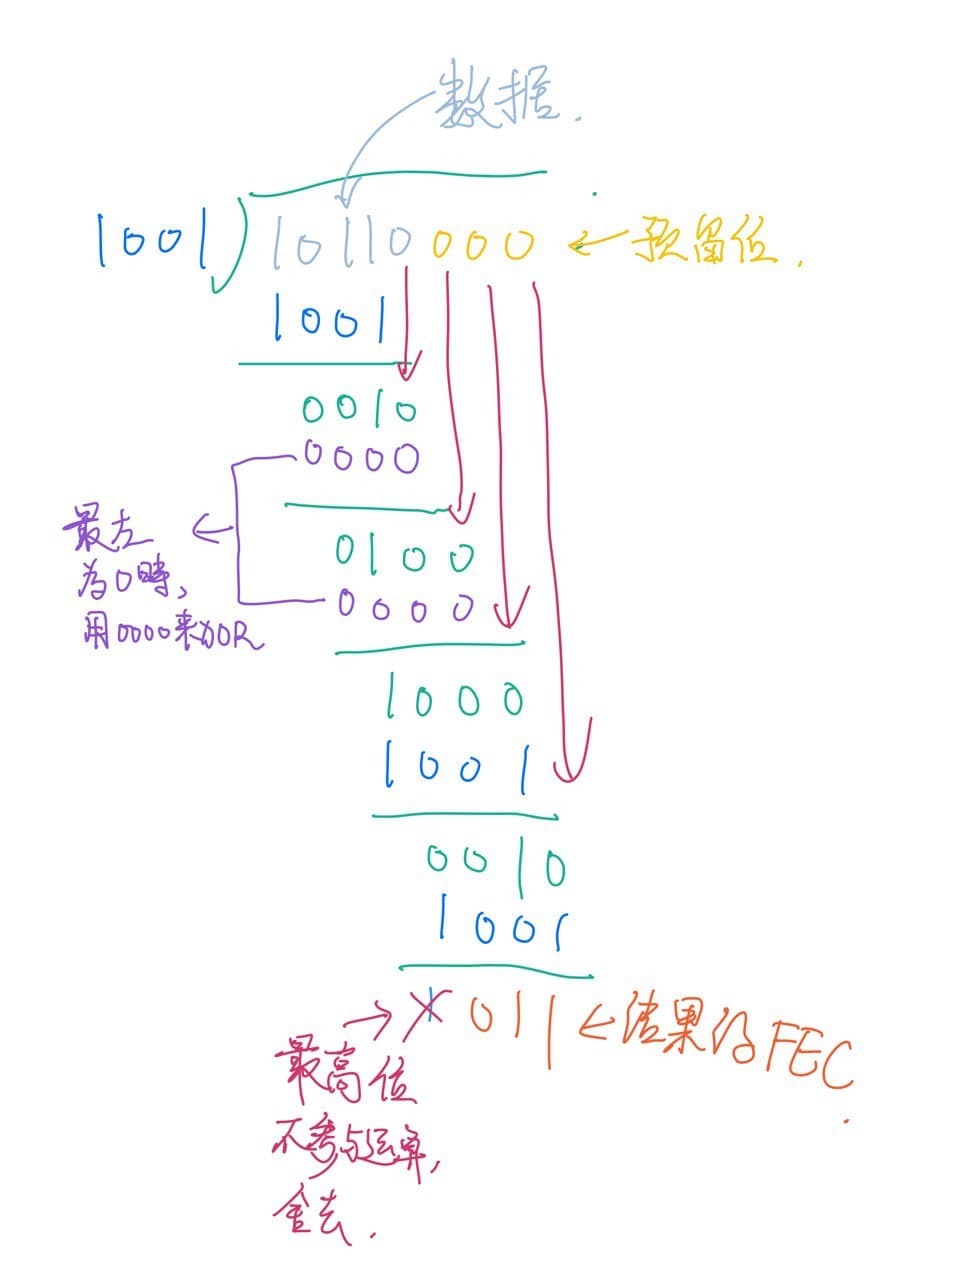 数据.
1001 10110000 ← 预留位.
1001
0010
0000
最左
为0時,
用0000来XOR
0100
0000
1000
1001
0010
1001
1011 ← 结果为FEC.
最高位
不参与运算,
舍去.